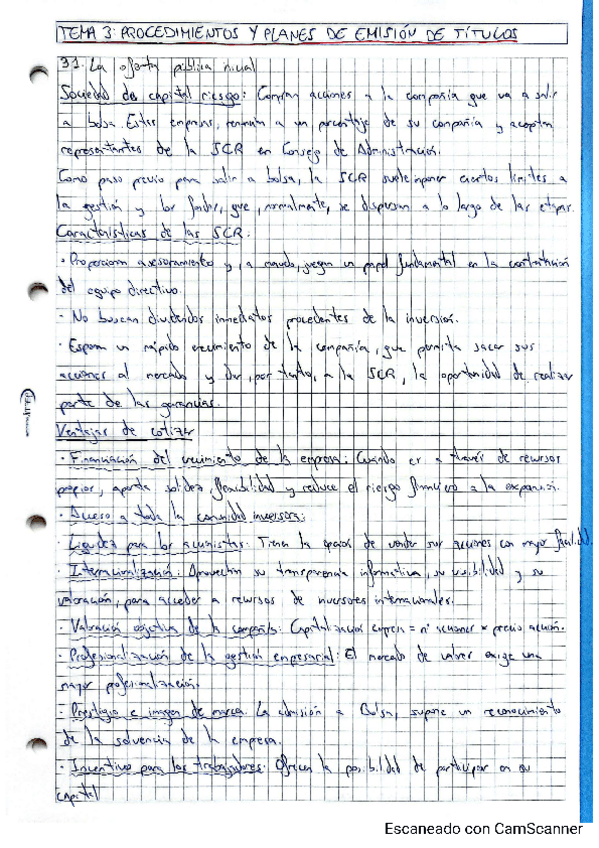 TEMA 3: PROCEDIMIENTOS Y PLANES DE EMISIÓN DE TÍTULOS
3.1. La oferta pública inicial
Sociedad de capital riesgo: Compran acciones a la compañía que va a salir
a bolsa. Estas empresas, renuncian a un porcentaje de su compañía y aceptan
representantes de la SCR en Consejo de Administración.
Como paso previo para salir a bolsa, la SCR suele imponer ciertos límites a
la gestión y los fondos, que, normalmente, se dispersan a lo largo de las etapas.
Características de las SCR:
· Proporcionan asesoramiento y, a menudo, juegan un papel fundamental en la contratación
del equipo directivo.
· No buscan dividendos inmediatos procedentes de la inversión.
· Esperan un rápido crecimiento de la compañía, que permita sacar sus
acciones al mercado y dar, por tanto, a la SCR, la oportunidad de realizar
parte de las ganancias.
Ventajas de cotizar
· Financiación del crecimiento de la empresa: Cuando es a través de recursos
propios, aporta solidez, flexibilidad y reduce el riesgo financiero a la expansión.
· Acceso a toda la comunidad inversora:
· Liquidez para los accionistas: Tienen la opción de vender sus acciones con mayor facilidad.
· Internacionalización: Aprovechan su transparencia informativa, su visibilidad y su
valoración, para acceder a recursos de inversores internacionales.
· Valoración objetiva de la compañía: Capitalización empresa = nº acciones × precio acción.
· Profesionalización de la gestión empresarial: El mercado de valores exige una
mayor profesionalización.
· Prestigio e imagen de marca: La admisión a Bolsa, supone un reconocimiento
de la solvencia de la empresa.
· Incentivo para los trabajadores: Ofrecen la posibilidad de participar en su
capital
Escaneado con CamScanner